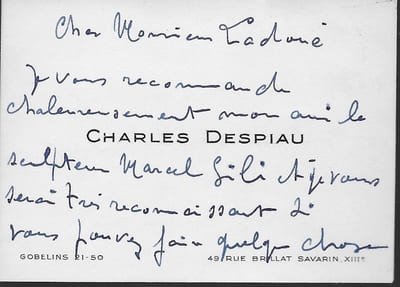 Cher Monsieur Ladoué
Je vous recommande
chaleureusement mon ami le
CHARLES DESPIAU
sculpteur Marcel Gili et je vous
serai très reconnaissant si
vous pouvez faire quelque chose
GOBELINS 21-50 49, RUE BRILLAT SAVARIN, XIIIe